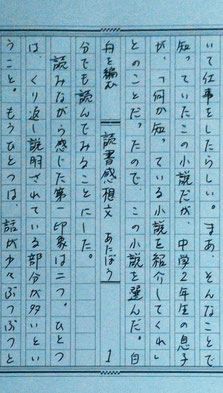 いて仕事をしたらしい。まあ、そんなことで
知っていたこの小説だが、中学2年生の息子
が、「何か知っている小説を紹介してくれ」
とのことだったので、この小説を選んだ。自
舟を編む 読書感想文 あたぼう 1
分でも読んでみることにした。
読みながら感じた第一印象は二つ。ひとつ
は、くり返し説明されている部分が多いとい
うこと。もうひとつは、話が少々ぶつぶつと